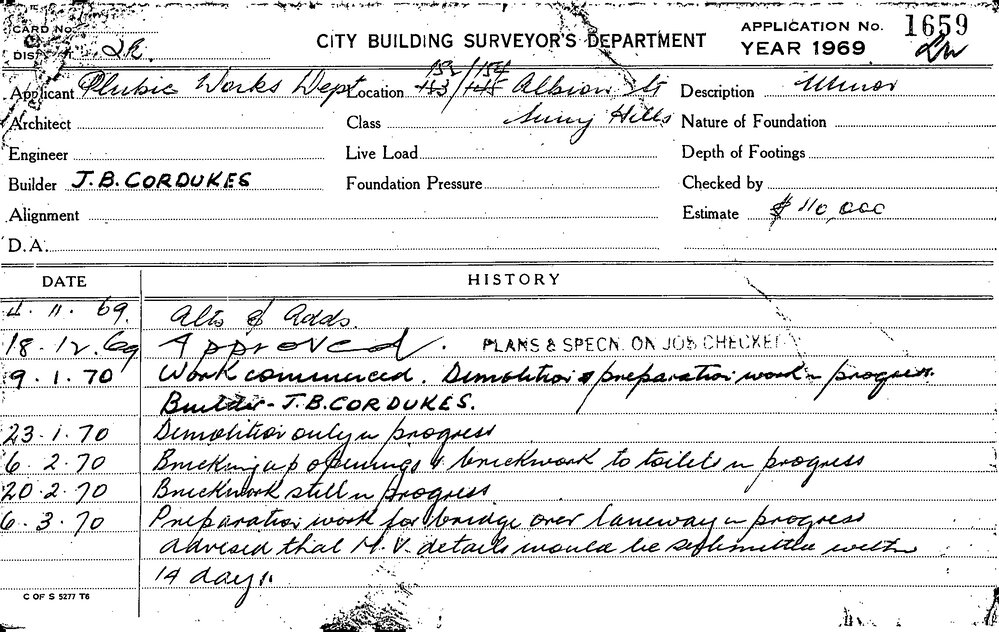 CARD No.
CITY BUILDING SURVEYOR'S DEPARTMENT
APPLICATION No. 1659
DIS
YEAR 1969
Applicant Plubic Works Dept
Location 152/154 Albion St
Description Minor
Architect
Class Surry Hills
Nature of Foundation
Engineer
Live Load
Depth of Footings
Builder J.B. CORDUKES
Foundation Pressure
Checked by
Alignment
Estimate $ 110,000
D.A.
DATE HISTORY
4.11.69. Alts & Adds.
18.12.69 Approved. PLANS & SPECN. ON JOB CHECKED
9.1.70 Work commenced. Demolition & preparation work in progress.
Builder - J.B. CORDUKES.
23.1.70 Demolition only in progress
6.2.70 Bricking up openings & brickwork to toilets in progress
20.2.70 Brickwork still in progress
6.3.70 Preparation work for bridge over laneway in progress
advised that M.V. details would be submitted within
14 days.
C OF S 5277 T6